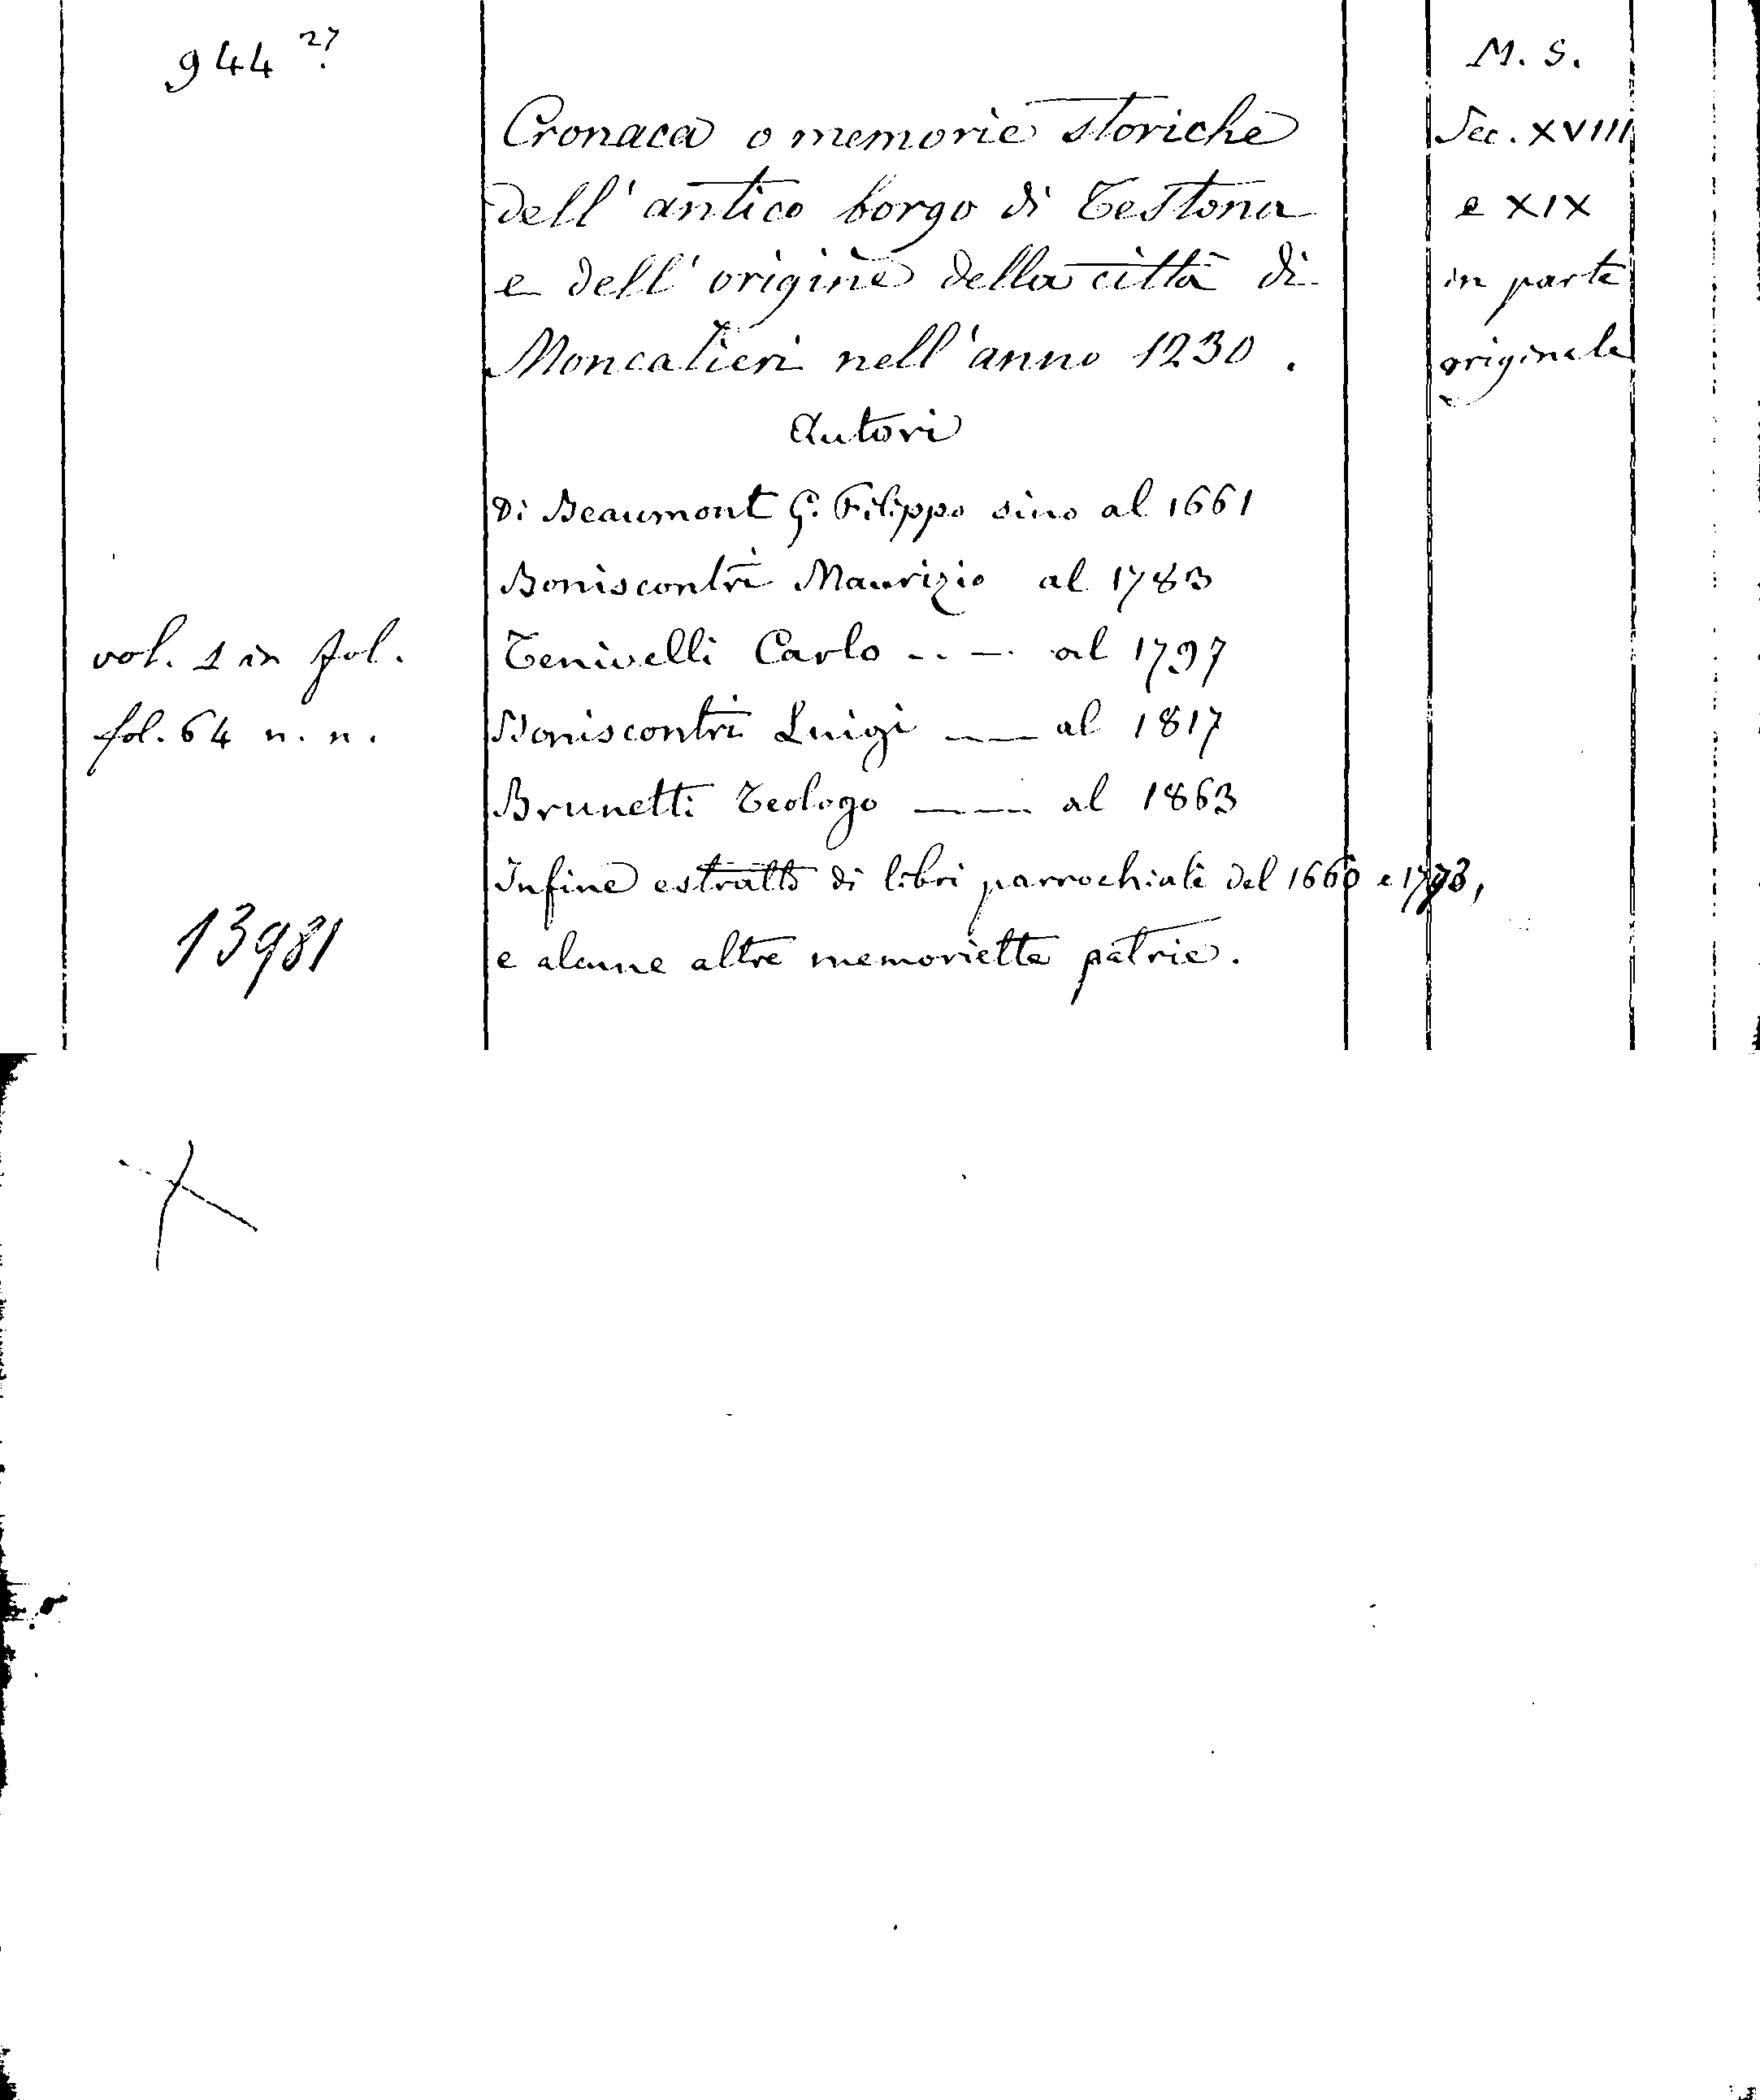 944 27
M. S.
Cronaca o memorie storiche
Sec. XVIII
dell' antico borgo di Testona
e XIX
e dell' origine della città di
in parte
Moncalieri nell'anno 1230.
originale
Autori
Di Beaumont G. Filippo sino al 1661
Boniscontri Maurizio al 1783
vol. 1 in fol.
Tenivelli Carlo .. — . al 1797
fol. 64 n. n.
Boniscontri Luigi —— al 1817
Brunetti Teologo —— al 1863
Infine estratto di libri parrochiali del 1660 e
13981
e alcune altre memoriette patrie.